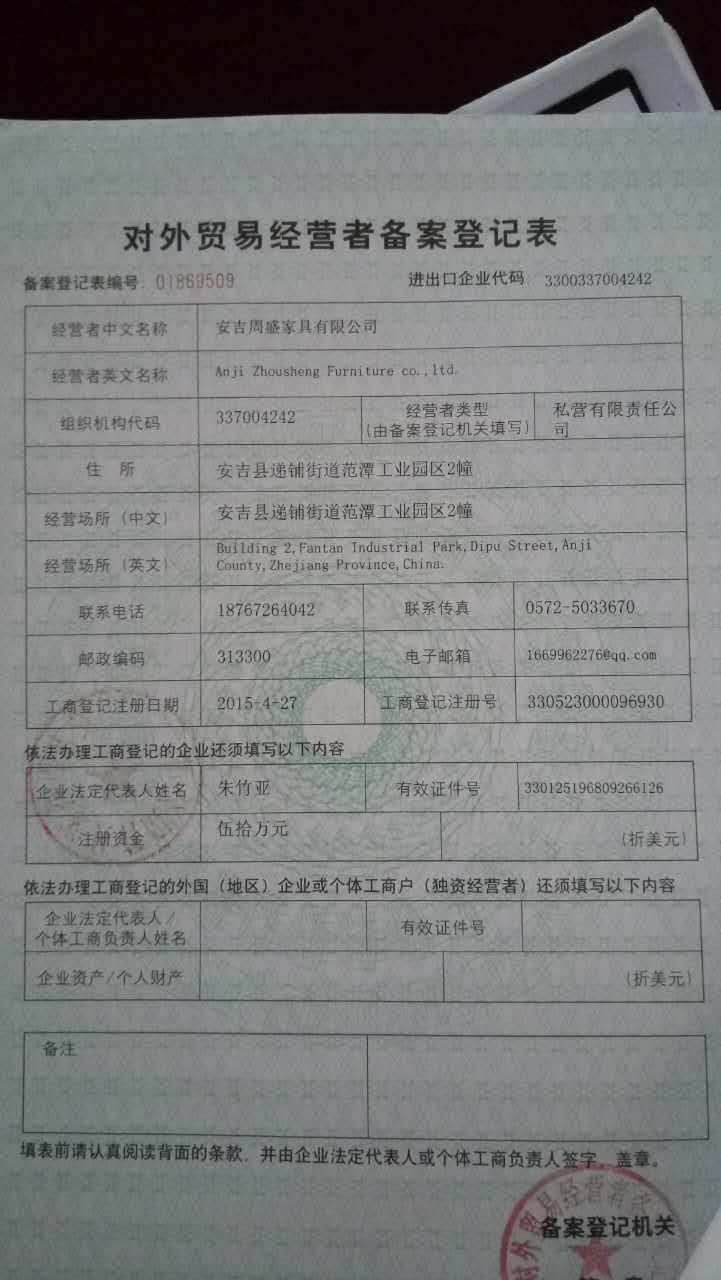 对外贸易经营者备案登记表
备案登记表编号: 01869509 进出口企业代码: 3300337004242
经营者中文名称 安吉周盛家具有限公司
经营者英文名称 Anji Zhousheng Furniture co.,ltd.
组织机构代码 337004242 经营者类型 (由备案登记机关填写) 私营有限责任公司
住 所 安吉县递铺街道范潭工业园区2幢
经营场所（中文） 安吉县递铺街道范潭工业园区2幢
经营场所（英文） Building 2,Fantan Industrial Park,Dipu Street,Anji
County,Zhejiang Province,China.
联系电话 18767264042 联系传真 0572-5033670
邮政编码 313300 电子邮箱 1669962276@qq.com
工商登记注册日期 2015-4-27 工商登记注册号 330523000096930
依法办理工商登记的企业还须填写以下内容
企业法定代表人姓名 朱竹亚 有效证件号 330125196809266126
注册资金 伍拾万元 (折美元)
依法办理工商登记的外国（地区）企业或个体工商户（独资经营者）还须填写以下内容
企业法定代表人/
个体工商负责人姓名 有效证件号
企业资产/个人财产 (折美元)
备注
填表前请认真阅读背面的条款，并由企业法定代表人或个体工商负责人签字、盖章。
对外贸易经营者
备案登记机关